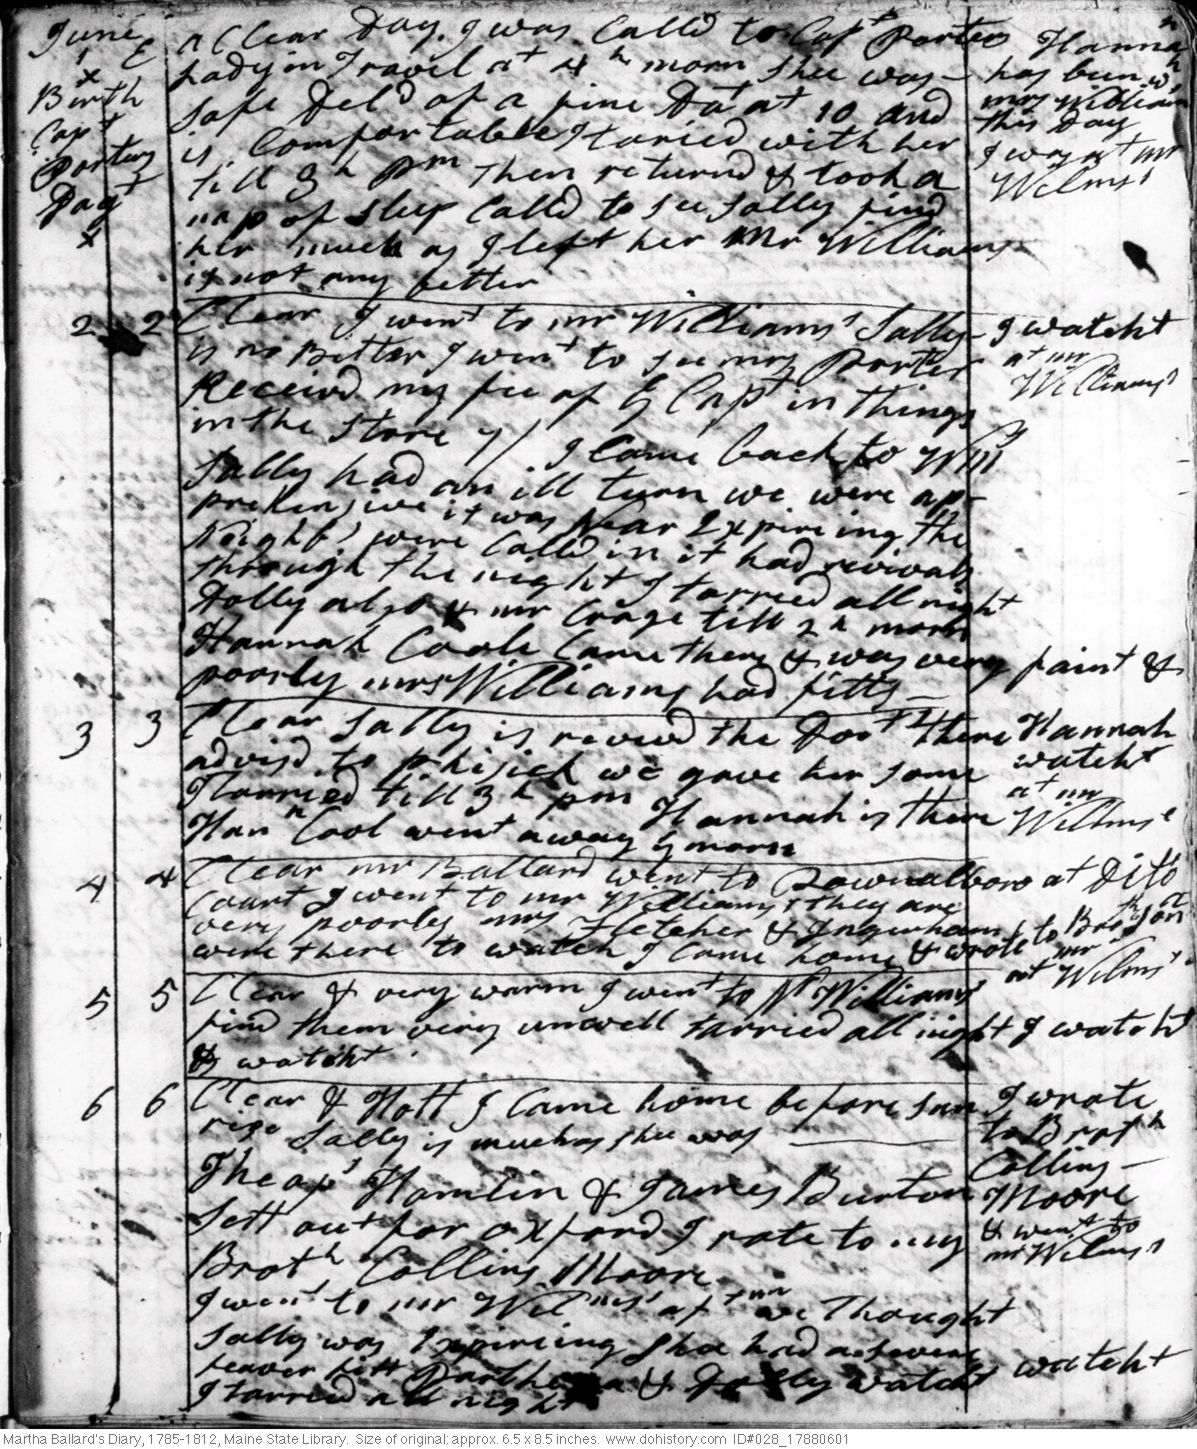 June
1 E
x
Birth
Capt
Porters
Dagt
x
a Clear Day. I was Calld to Capt Porters
Lady in Travel at 4 h morn shee was
safe Deld of a fine Dat at 10 and
is Comfortable I taried with her
till 3 h pm then returnd & took a
nap of sleep Calld to see Sally find
her much as I left her Mr Williams
is not any better
Hannah
has been
mrs William
this Day
I was at mr
Wilms's
2 2 Clear I went to mr Williams's Sally
is no Better I went to see mrs Porter
Receivd my fee of ye Capt in things
in the store I Came back to Will
Sally had an ill turn we were ap-
prehensive it was Near Expireing the
Neighbs were Calld in it had revivals
through the night I tarried all night
Dolly also & mr Crage till 2 h morn
Hannah Coole Came there & was very faint &
poorly mrs Williams had fitts
I watcht
at mr
Williams's
3 3 Clear Sally is revivd the Doct there
advisd to phisick we gave her some
I tarried till 3 h pm Hannah is there
Han h Cool went away ye morn
Hannah
watcht
at mr
Wilms's
4 4 Clear mr Ballard went to Pownalboro at Ditto
Court I went to mr Williams's they are
very poorly mrs Fletcher & Ingerham
were there to watch I Came home & wrote to Brot Jon a
at mr Wilms's
5 5 Clear & very warm I went to Mr Williams's
find them very unwell tarried all night I watcht
& watcht.
6 6 Clear & Hott I Came home before sun
rise Sally is much as shee was
Theops Hamlin & James Burton
sett out for oxford I rote to my
Brot h Collins Moore
I went to mr Wilms's aftnn we Thought
Sally was Expireing Shee had a severe
feaver fitt Parthena & Dolly watcht
I tarried all night
I wrote
to Brot h
Collins
Moore
& went to
mr Wilms's
watcht
Martha Ballard's Diary, 1785-1812, Maine State Library. Size of original: approx. 6.5 x 8.5 inches. www.dohistory.com ID#028_17880601